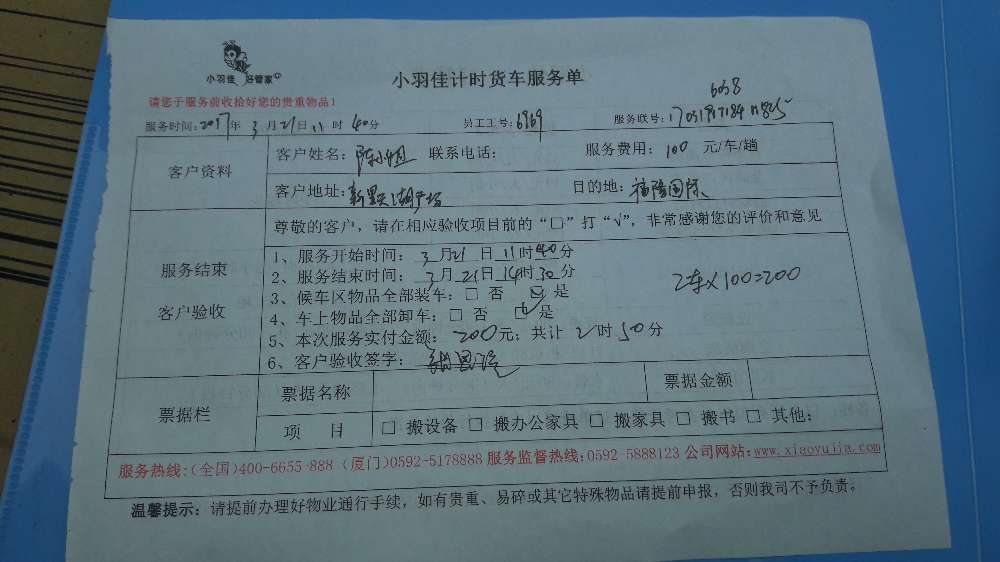 小羽佳 好管家
小羽佳计时货车服务单
请您于服务前收拾好您的贵重物品！
6038
服务时间：2017年 3月21日11时40分 员工工号：6969 服务联号：
客户资料
客户姓名：陈小姐 联系电话： 服务费用：100 元/车/趟
客户地址： 目的地：福隆国际
服务结束
客户验收
尊敬的客户，请在相应验收项目前的“□”打“√”，非常感谢您的评价和意见
1、服务开始时间：3月21日11时40分
2、服务结束时间：3月21日14时30分
3、候车区物品全部装车：□ 否 ☑ 是
4、车上物品全部卸车：□ 否 ☑ 是
5、本次服务实付金额：200元；共计2时50分
6、客户验收签字：
2车×100=200
票据栏
票据名称 票据金额
项 目 □ 搬设备 □ 搬办公家具 □ 搬家具 □ 搬书 □ 其他：
服务热线：(全国)400-6655-888 (厦门)0592-5178888 服务监督热线：0592-5888123 公司网站：www.xiaoyujia.com
温馨提示：请提前办理好物业通行手续，如有贵重、易碎或其它特殊物品请提前申报，否则我司不予负责。